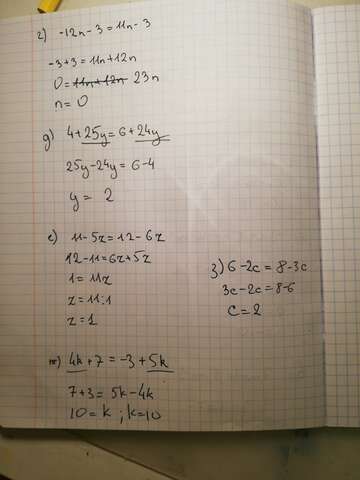 г) -12n - 3 = 11n - 3
-3+3 = 11n+12n
0 = 11n+12n 23n
n = 0
д) 4+25y = 6+24y
25y-24y = 6-4
y = 2
е) 11-5z = 12-6z
12-11=6z+5z
1 = 11z
z = 11:1
z = 1
ж) 4k+7 = -3+5k
7+3 = 5k-4k
10 = k ; k=10
з) 6-2c = 8-3c
3c-2c=8-6
c = 2